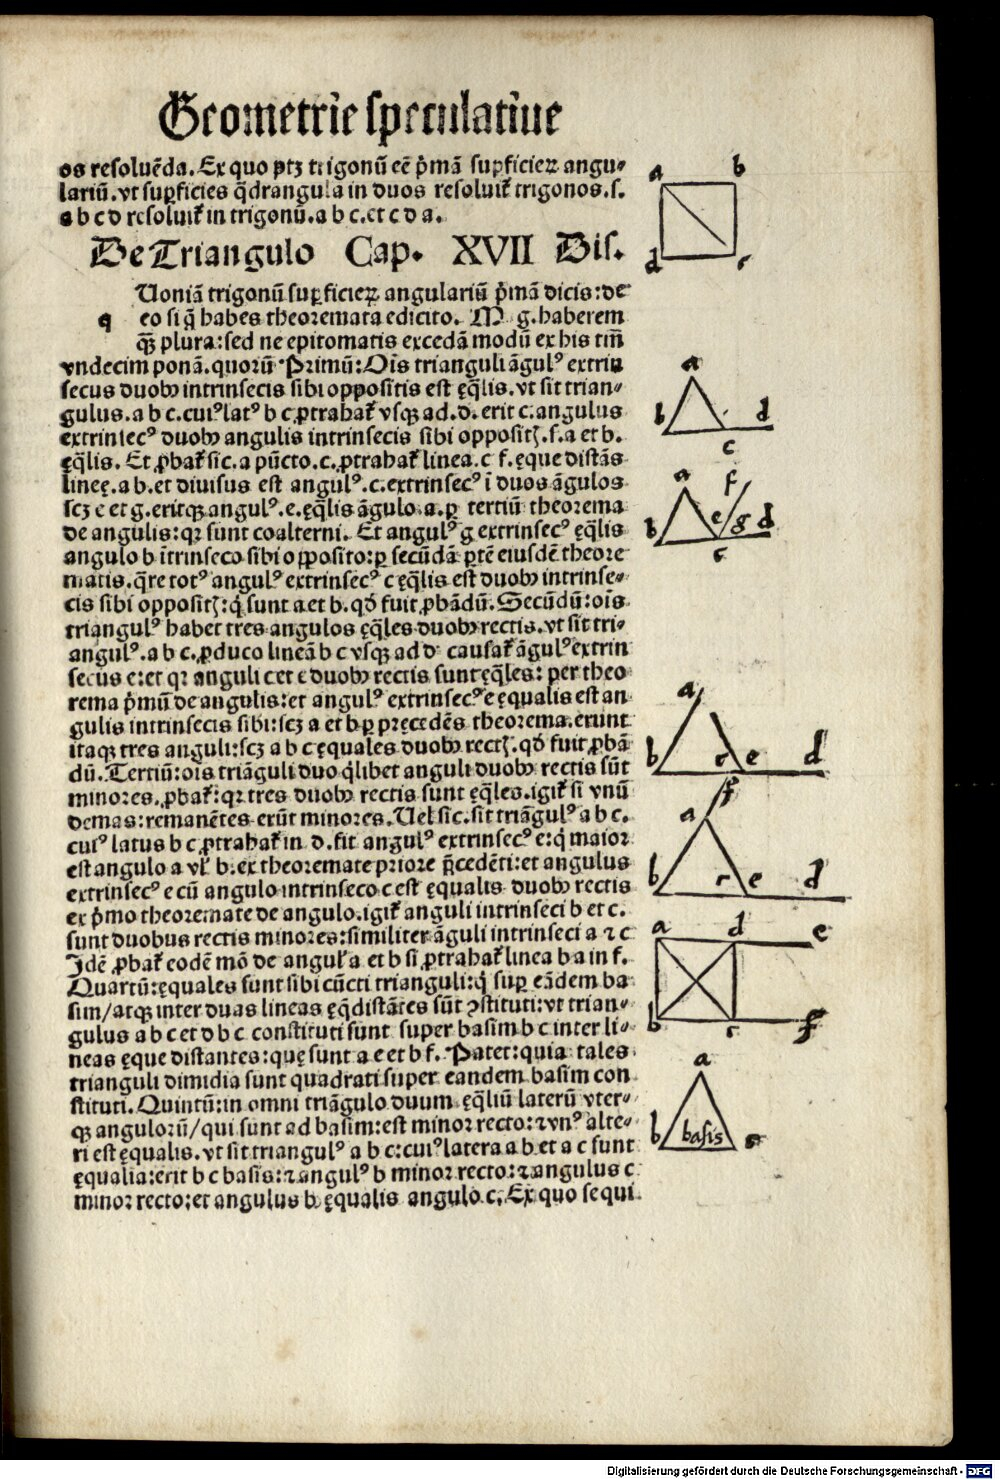 Geometrie speculatiue
os resoluēda. Ex quo ptꝫ trigonū eē p̄mā suꝑficieꝝ angu⸗
lariū. vt suꝑficies q̄drangula in duos resoluit᷑ trigonos. s.
a b c d resoluit᷑ in trigonū. a b c. et c d a.
De Triangulo Cap. XVII Dis.
Uoniā trigonū suꝑficieꝝ angulariū p̄mā dicis: de
q eo si q̄ habes theoremata edicito. M g. haberem
qꝫ plura: sed ne epitomatis excedā modū ex his tm̄
vndecim ponā. quorū Primū: Oīs trianguli āgulꝰ extrin
secus duobꝫ intrinsecis sibi oppositis est ęq̄lis. vt sit trian⸗
gulus. a b c. cuiꝰ latꝰ b c ꝓtrahat᷑ vsqꝫ ad. d. erit c. angulus
extrinsecꝰ duobꝫ angulis intrinsecis sibi oppositꝭ. s. a et b.
ęq̄lis. Et ꝓbat᷑ sic. a pūcto. c. ꝓtrahat᷑ linea. c f. ęque distās
lineę. a b. et diuisus est angulꝰ. c. extrinsecꝰ ī duos āgulos
scꝫ e et g. eritqꝫ angulꝰ. e. ęq̄lis āgulo. a. ꝑ tertiū theorema
de angulis: qꝛ sunt coalterni. Et angulꝰ g extrinsecꝰ ęq̄lis
angulo b ītrinseco sibi opposito: ꝑ secūdā ꝑtē eiusdē theore
matis. q̄re totꝰ angulꝰ extrinsecꝰ c ęq̄lis est duobꝫ intrinse⸗
cis sibi oppositꝭ: q̇ sunt a et b. qd̄ fuit ꝓbādū. Secūdū: oīs
triangulꝰ habet tres angulos ęq̄les duobꝫ rectis. vt sit tri⸗
angulꝰ. a b c. ꝓduco lineā b c vsqꝫ ad d causat᷑ āgulꝰ extrin
secus e: et qꝛ anguli c et e duobꝫ rectis sunt ęq̄les: per theo
rema p̄mū de angulis: et angulꝰ extrinsecꝰ e ęqualis est an
gulis intrinsecis sibi: scꝫ a et b ꝑ pręcedēs theorema. erunt
itaqꝫ tres anguli: scꝫ a b c ęquales duobꝫ rectꝭ. qd̄ fuit ꝓbā
dū. Tertiū: oīs triāguli duo q̇libet anguli duobꝫ rectis sūt
minores. ꝓbat᷑: qꝛ tres duobꝫ rectis sunt ęq̄les. igit᷑ si vnū
demas: remanētes erūt minores. Uel sic. sit triāgulꝰ a b c.
cuiꝰ latus b c ꝓtrahat᷑ in d. fit angulꝰ extrinsecꝰ e: q̇ maior
est angulo a vl̓ b. ex theoremate priore p̄cedēti: et angulus
extrinsecꝰ e cū angulo intrinseco c est ęqualis duobꝫ rectis
ex p̄mo theoremate de angulo. igit᷑ anguli intrinseci b et c.
sunt duobus rectis minores: similiter āguli intrinseci a ⁊ c
Idē ꝓbat᷑ eodē mō de angul̓ a et b si ꝓtrahat᷑ linea b a in f.
Quartū: ęquales sunt sibi cūcti trianguli: q̇ suꝑ eādem ba
sim/atqꝫ inter duas lineas ęq̄distātes sūt ꝯstituti: vt trian⸗
gulus a b c et d b c constituti sunt super basim b c inter li⸗
neas ęque distantes: quę sunt a e et b f. Patet: quia tales
trianguli dimidia sunt quadrati super eandem basim con
stituti. Quintū: in omni triāgulo duum ęq̄liū laterū vter⸗
qꝫ angulorū/qui sunt ad basim: est minor recto: ⁊ vnꝰ alte⸗
ri est ęqualis. vt sit triangulꝰ a b c: cuiꝰ latera a b et a c sunt
ęqualia: erit b c basis: ⁊ angulꝰ b minor recto: ⁊ angulus c
minor recto: et angulus b ęqualis angulo c. Ex quo sequi
a b
d c
a
b d
c
a f
b e g d
c
a
b c e d
f
a
b c e d
a d e
b c f
a
b basis c
Digitalisierung gefördert durch die Deutsche Forschungsgemeinschaft - DFG